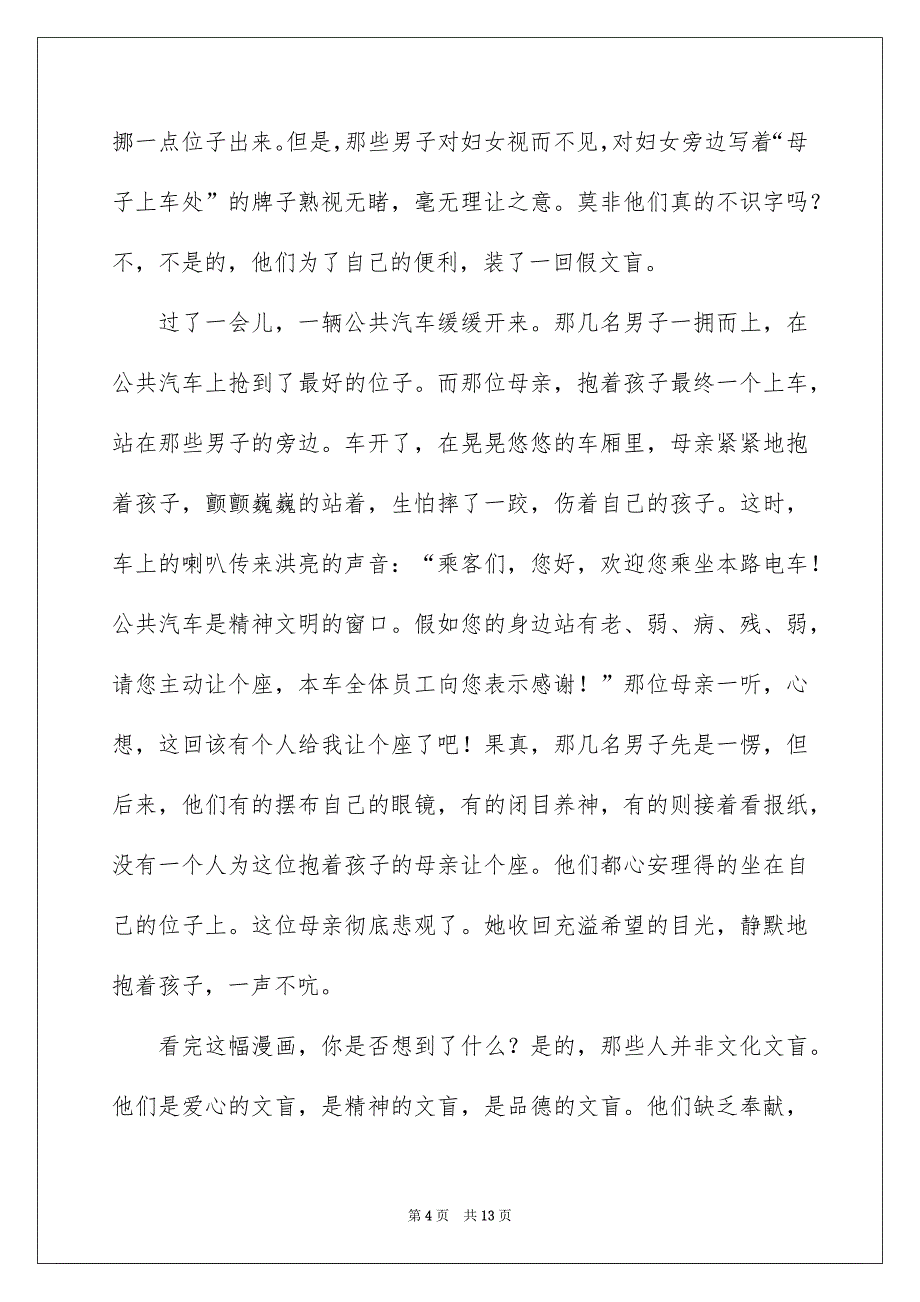 挪一点位子出来。但是，那些男子对妇女视而不见，对妇女旁边写着“母
子上车处”的牌子熟视无睹，毫无理让之意。莫非他们真的不识字吗？
不，不是的，他们为了自己的便利，装了一回假文盲。
过了一会儿，一辆公共汽车缓缓开来。那几名男子一拥而上，在
公共汽车上抢到了最好的位子。而那位母亲，抱着孩子最终一个上车，
站在那些男子的旁边。车开了，在晃晃悠悠的车厢里，母亲紧紧地抱
着孩子，颤颤巍巍的站着，生怕摔了一跤，伤着自己的孩子。这时，
车上的喇叭传来洪亮的声音：“乘客们，您好，欢迎您乘坐本路电车！
公共汽车是精神文明的窗口。假如您的身边站有老、弱、病、残、弱，
请您主动让个座，本车全体员工向您表示感谢！”那位母亲一听，心
想，这回该有个人给我让个座了吧！果真，那几名男子先是一愣，但
后来，他们有的摆布自己的眼镜，有的闭目养神，有的则接着看报纸，
没有一个人为这位抱着孩子的母亲让个座。他们都心安理得的坐在自
己的位子上。这位母亲彻底悲观了。她收回充溢希望的目光，静默地
抱着孩子，一声不吭。
看完这幅漫画，你是否想到了什么？是的，那些人并非文化文盲。
他们是爱心的文盲，是精神的文盲，是品德的文盲。他们缺乏奉献，
第 4 页 共 13 页